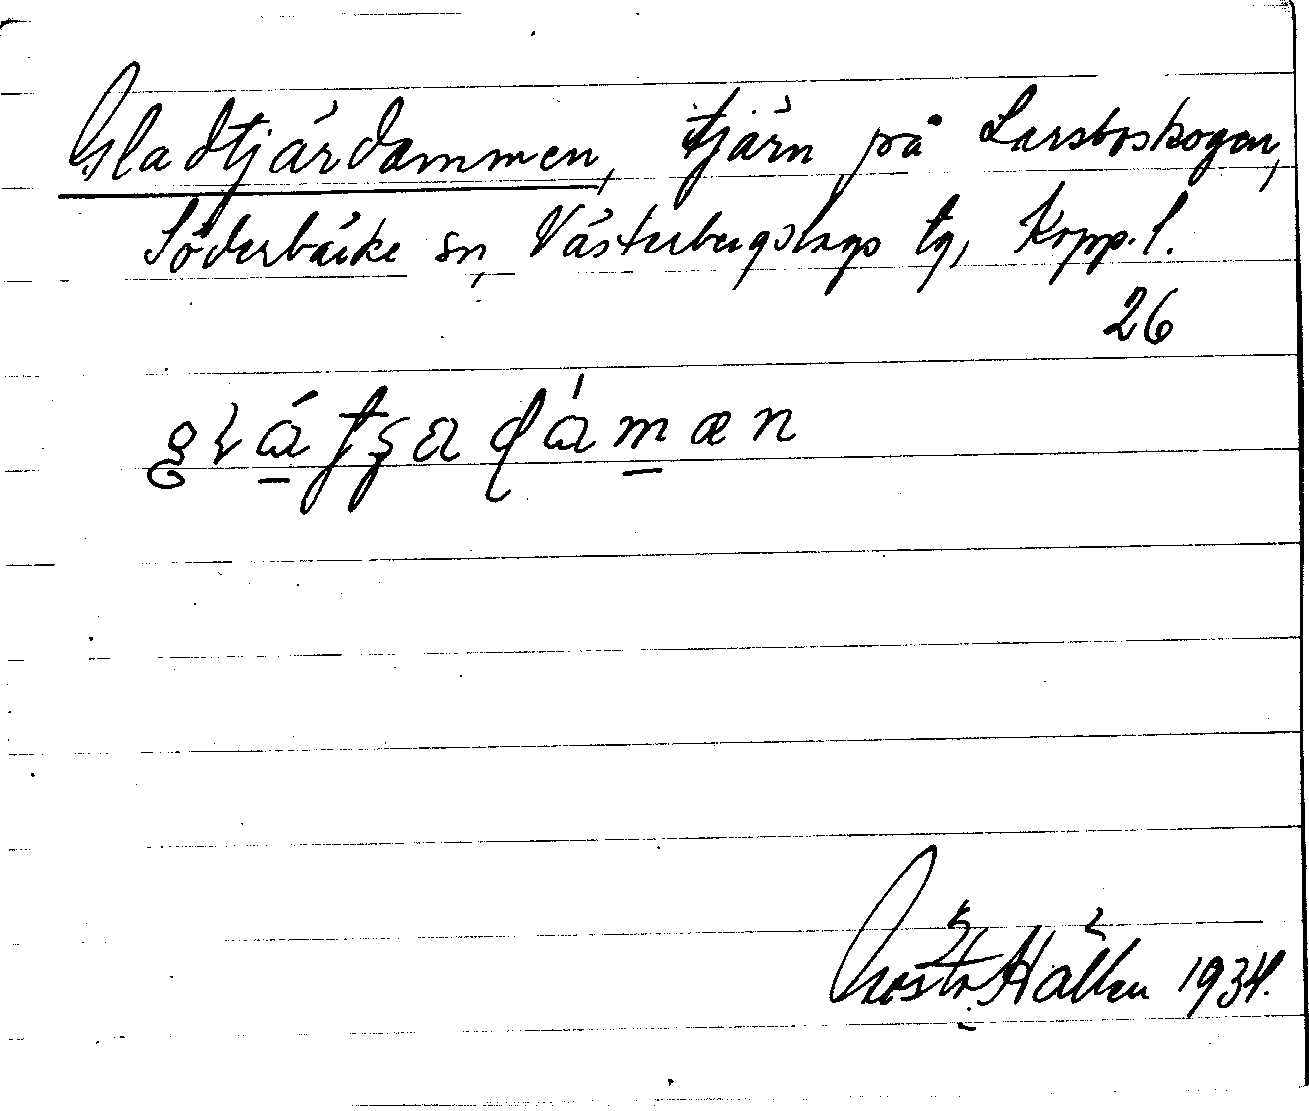 Gladtjärdammen, tjärn på Larsboskogen,
Söderbärke sn, Västerbergslags tg, Kopp. l.
26
Gösta Hallen 1934.